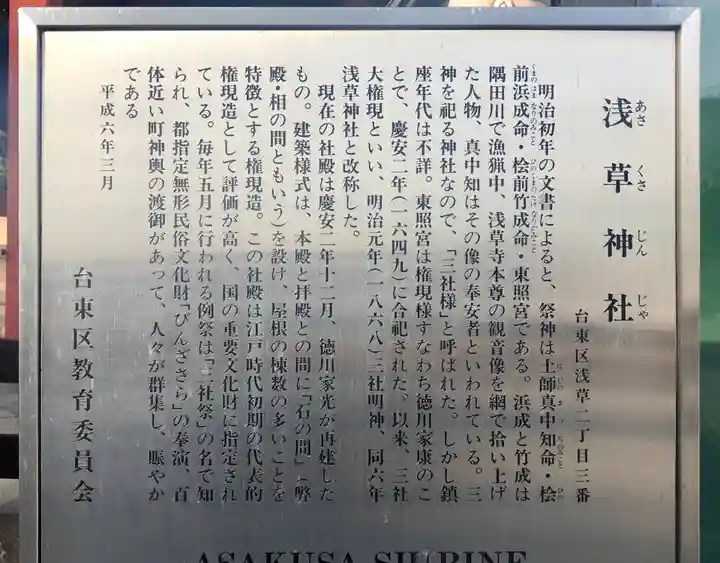 浅草神社
あさくさじんじゃ
台東区浅草二丁目三番
明治初年の文書によると、祭神は土師真中知命・桧
前浜成命・桧前竹成命・東照宮である。浜成と竹成は
隅田川で漁猟中、浅草寺本尊の観音像を網で拾い上げ
た人物、真中知はその像の奉安者といわれている。三
神を祀る神社なので、「三社様」と呼ばれた。しかし鎮
座年代は不詳。東照宮は権現様すなわち徳川家康のこ
とで、慶安二年(一六四九)に合祀された。以来、三社
大権現といい、明治元年(一八六八)三社明神、同六年
浅草神社と改称した。
現在の社殿は慶安二年十二月、徳川家光が再建した
もの。建築様式は、本殿と拝殿との間に「石の間」(弊
殿・相の間ともいう)を設け、屋根の棟数の多いことを
特徴とする権現造。この社殿は江戸時代初期の代表的
権現造として評価が高く、国の重要文化財に指定され
ている。毎年五月に行われる例祭は「三社祭」の名で知
られ、都指定無形民俗文化財「びんざさら」の奉演、百
体近い町神輿の渡御があって、人々が群集し、賑やか
である
平成六年三月
台東区教育委員会
ASAKUSA SHRINE